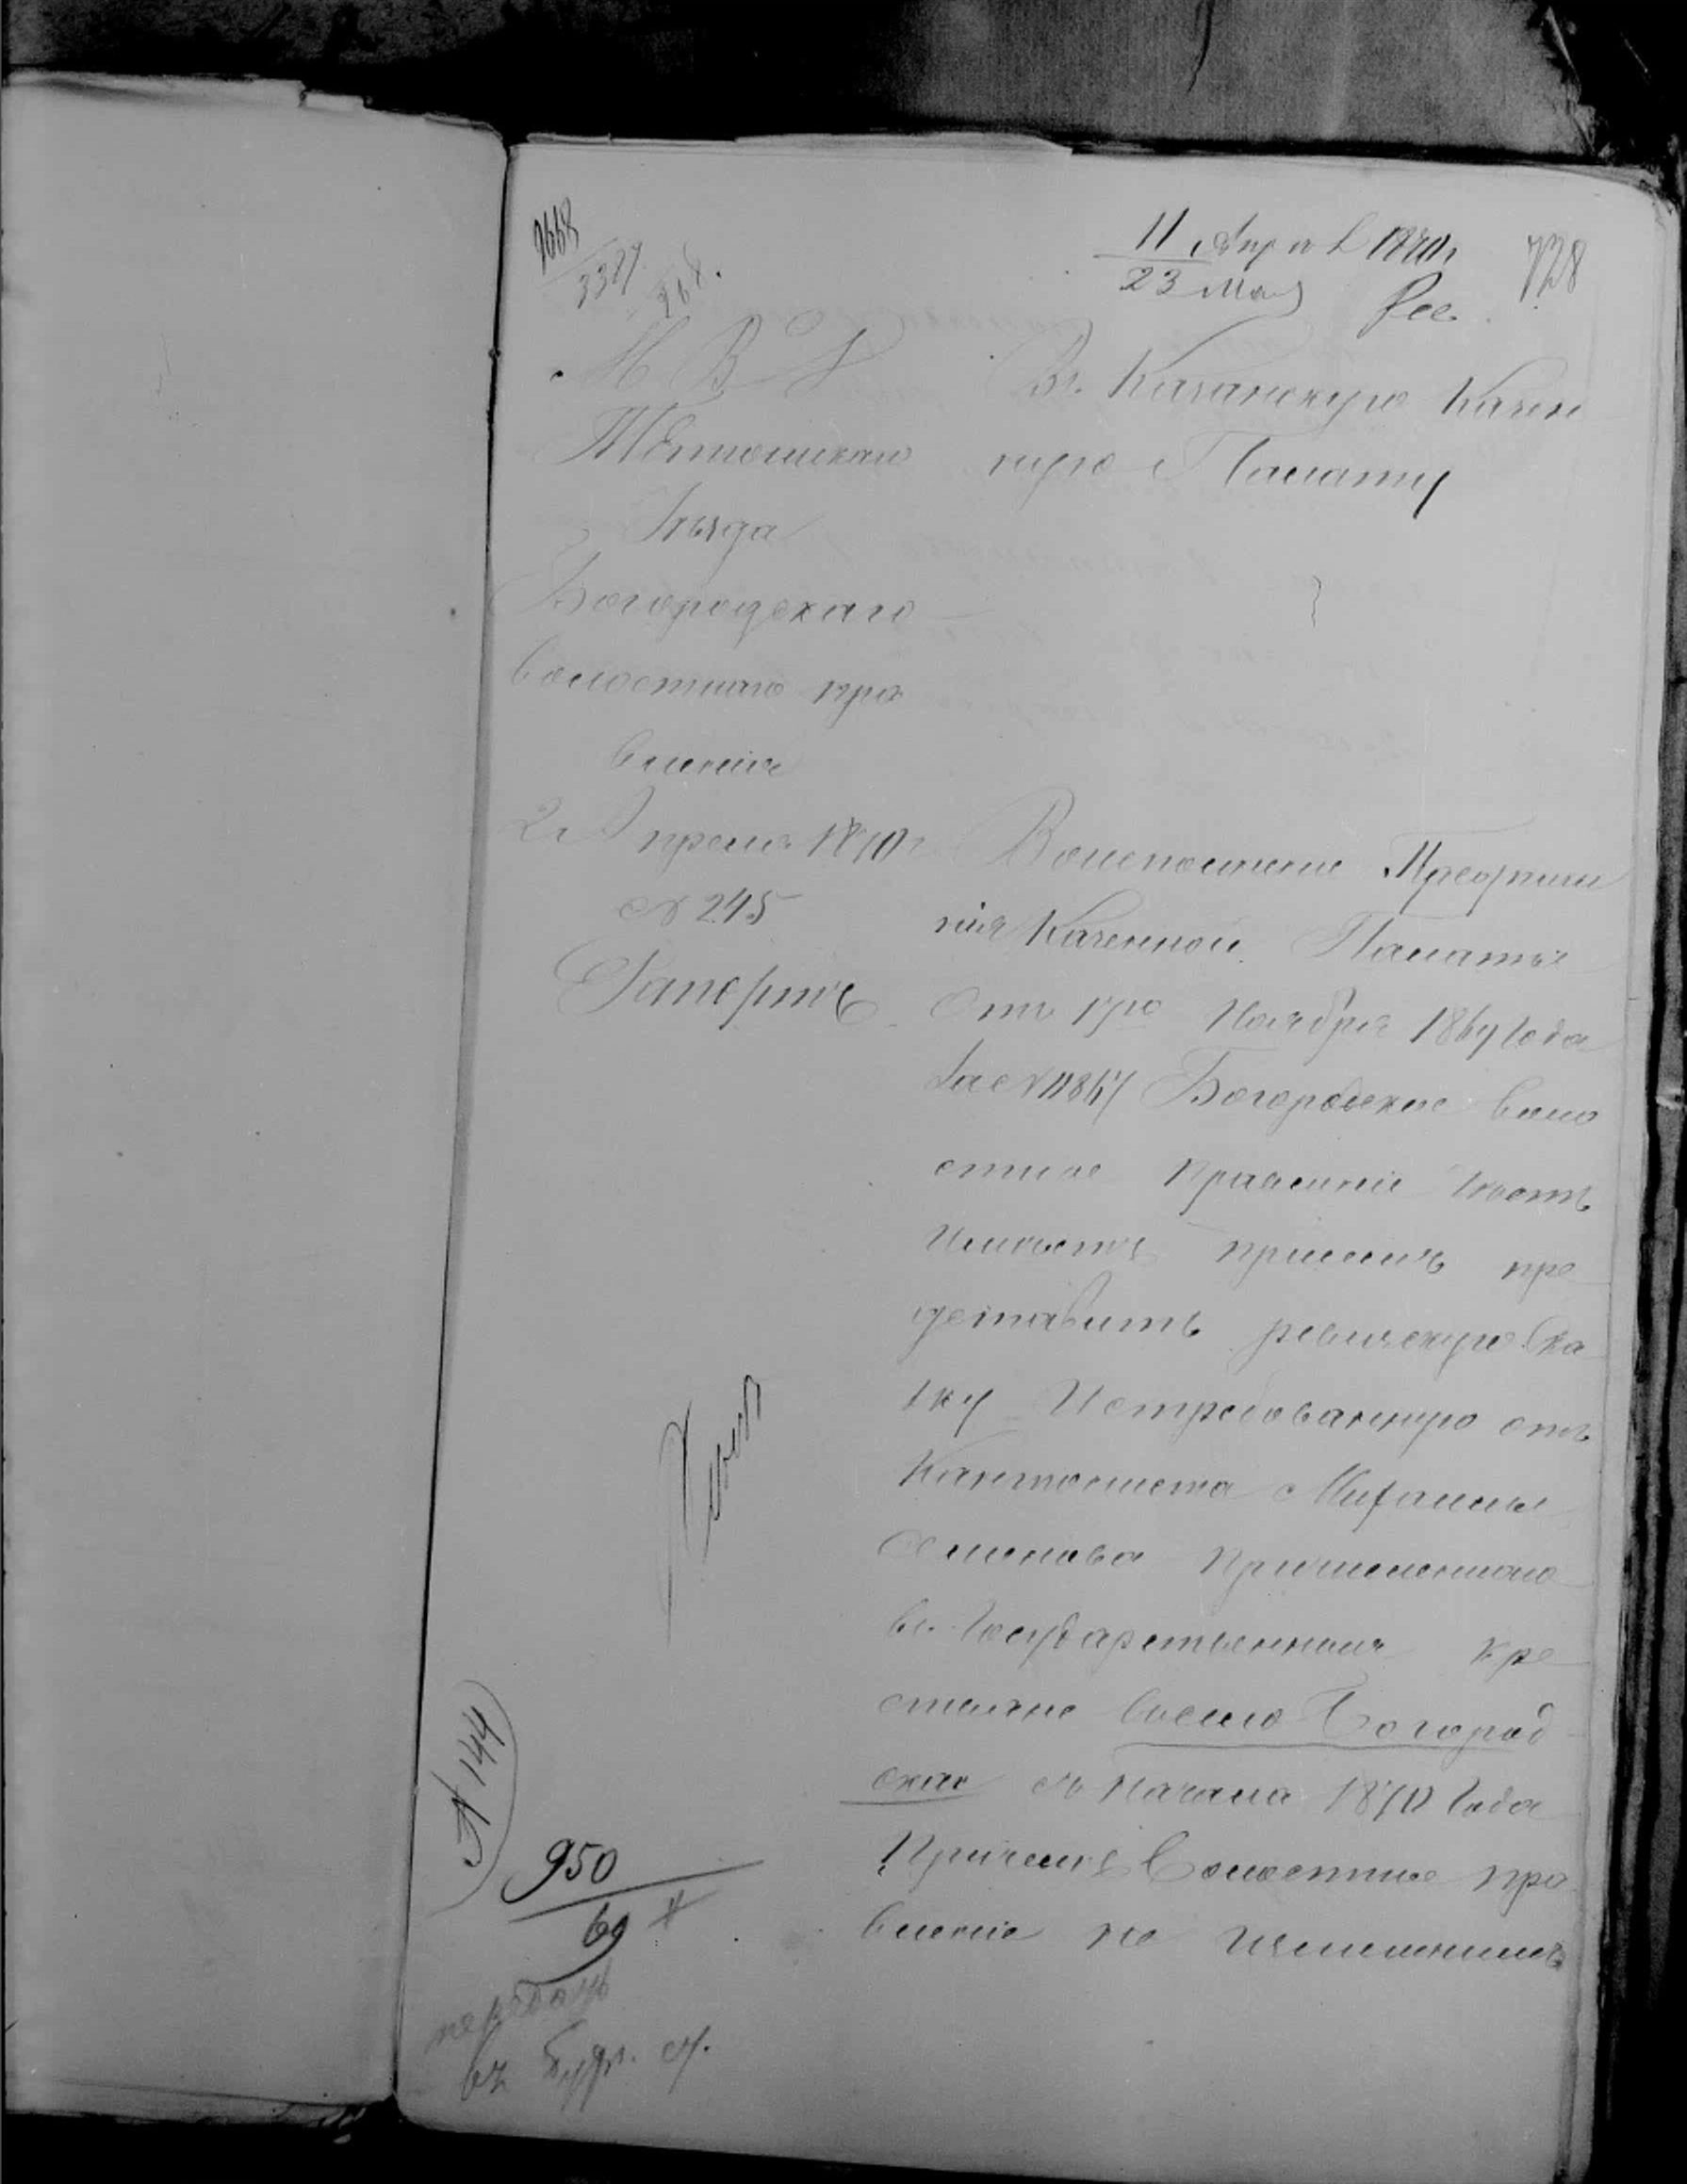 9668
3387
268.
11 Апрел 1870 г
23 Мая
728
М В Д
Тѣтюшскаго
Уѣзда
Богородскаго
волостнаго пра
вленія
2 Апреля 1870 г
№ 245
Рапортъ
Въ Казанскую Казен
ную Палату
Воисполнение Предписа
нія Казенной Палаты
Отъ 17го Ноября 1869 Года
За № 11867 Богородское воло
стное Правленіе Честь
Имѣетъ присемъ пре
дставить ревизскую Ска
зку Истребованную отъ
Кантониста Михаилы
Семенова Причисленнаго
въ Государственныя кре
стьяне Восело Богород
ская съ Начала 1870 Года
Причемъ Волостное пра
вление не
№ 144
950
69
передать
въ